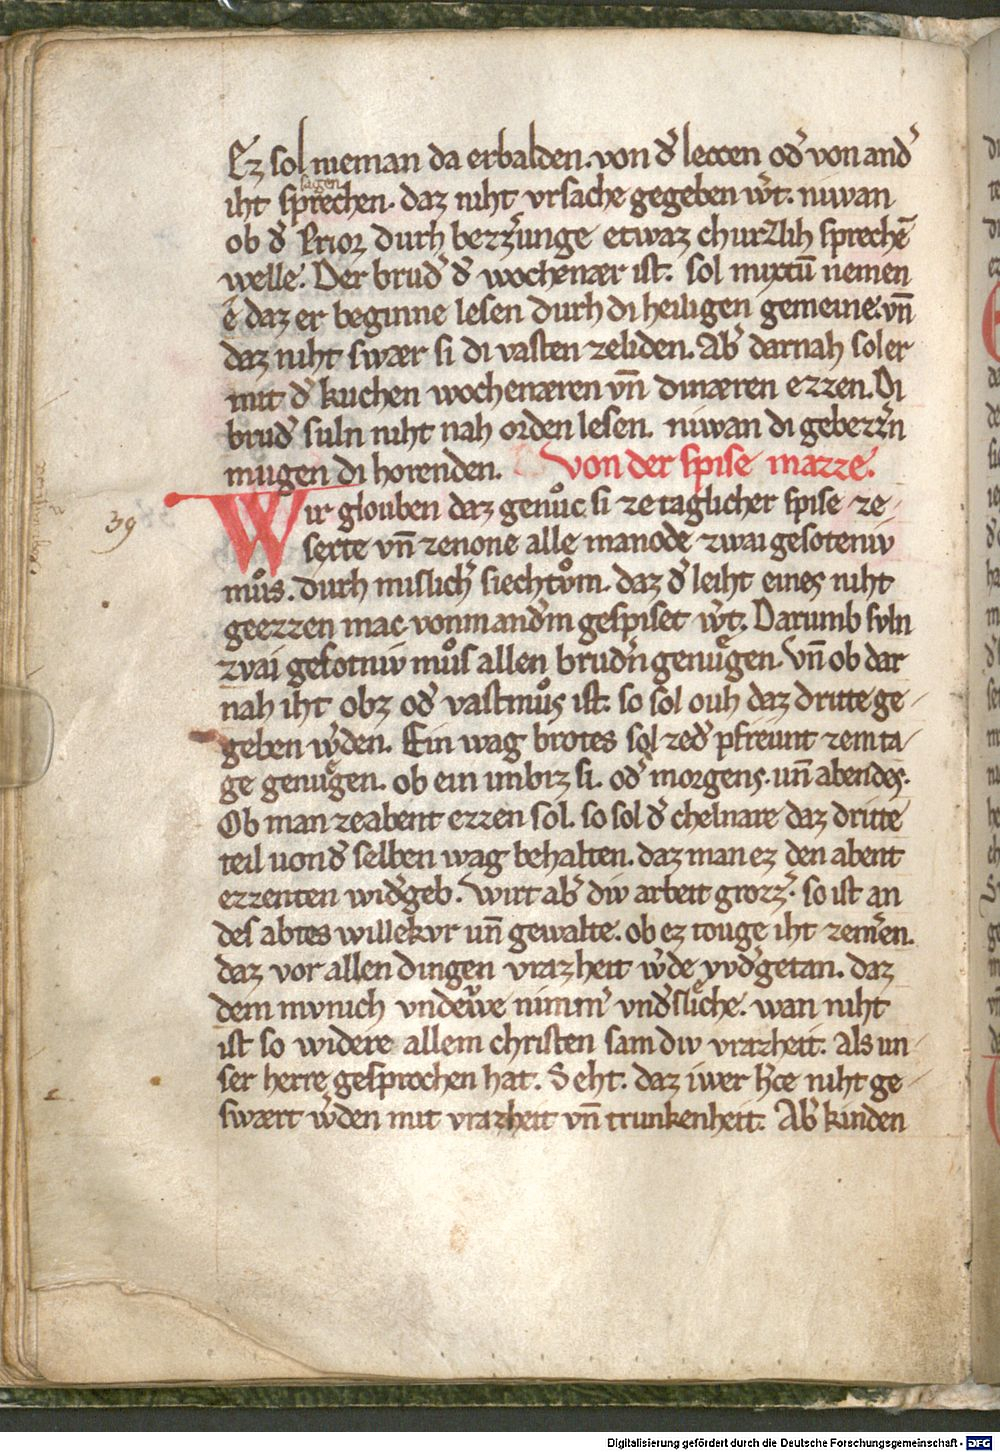 Ez sol nieman da erbalden. von d̓ leccen od̓ von and̓
sagen
iht sprechen. daz niht vrsache gegeben w̓t. niwan
ob d̓ Prior durh bezz̓unge etwaz churzlih sprechē
welle. Der brud̓ d̓ wochenær ist. sol mixtū nemen
ê daz er beginne lesen durh di heiligen gemeine. vn̄
daz niht swær si di vasten zeliden. Ab̓ darnah sol er
mit d̓ kuchen wochenæren vn̄ dinæren ezzen. Di
brud̓ suln niht nah orden lesen. niwan di gebezz̓n
mugen di horenden. Von der spise mazze.
39
Wir glouben daz genuͦc si ze taglicher spise ze
sexte vn̄ zenone alle manode zwai gesoteniv
muͦs. durh mislich̓ siechtvͦm. daz d̓ leiht eines niht
geezzen mac. vonm and̓m gespiset w̓t. Darumb svln
zvai gesotniv muͦs allen brud̓n genuͤgen. Vn̄ ob dar
nah iht obz od̓ vastmuͦs ist. so sol ouh daz dritte ge
geben w̓den. Ein wag brotes sol zed̓ pfreunt zem ta
ge genuͤgen. ob ein imbiz si. od̓ morgens. un̄ abendes.
Ob man zeabent ezzen sol. so sol d̓ chelnare daz dritte
teil uon d̓ selben wag behalten. daz man ez den abent
ezzenten wid̓geb. Wirt ab̓ div arbeit grozz̓. so ist an
des abtes willekvr un̄ gewalte. ob ez touge iht zem̓en.
daz vor allen dingen vrazheit w̓de vvd̓getan. daz
dem mvnich vndeuͤwe nimm̓ vnd̓sliche. wan niht
ist so widere allem christen sam div vrazheit. Als un
ser herre gesprochen hat. Seht. daz iwer h̓ce niht ge
swært w̓den mit vrazheit vn̄ trunkenheit. Ab̓ kinden
Digitalisierung gefördert durch die Deutsche Forschungsgemeinschaft - DFG